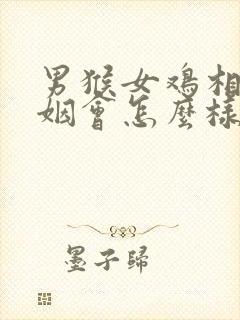 男猴女鸡相
姻會怎麽樣
墨子歸